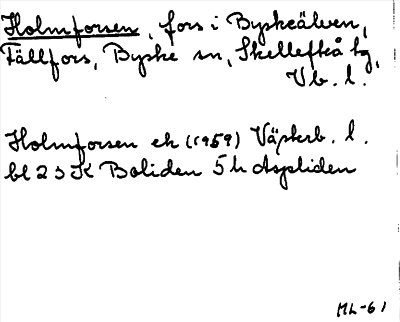 Holmforsen, fors i Byskeälven,
Fällfors, Byske sn, Skellefteå tg,
Vb. l.
Holmforsen ek (1959) Västerb. l.
bl 23 K Boliden 5 h Aspliden
ML-61